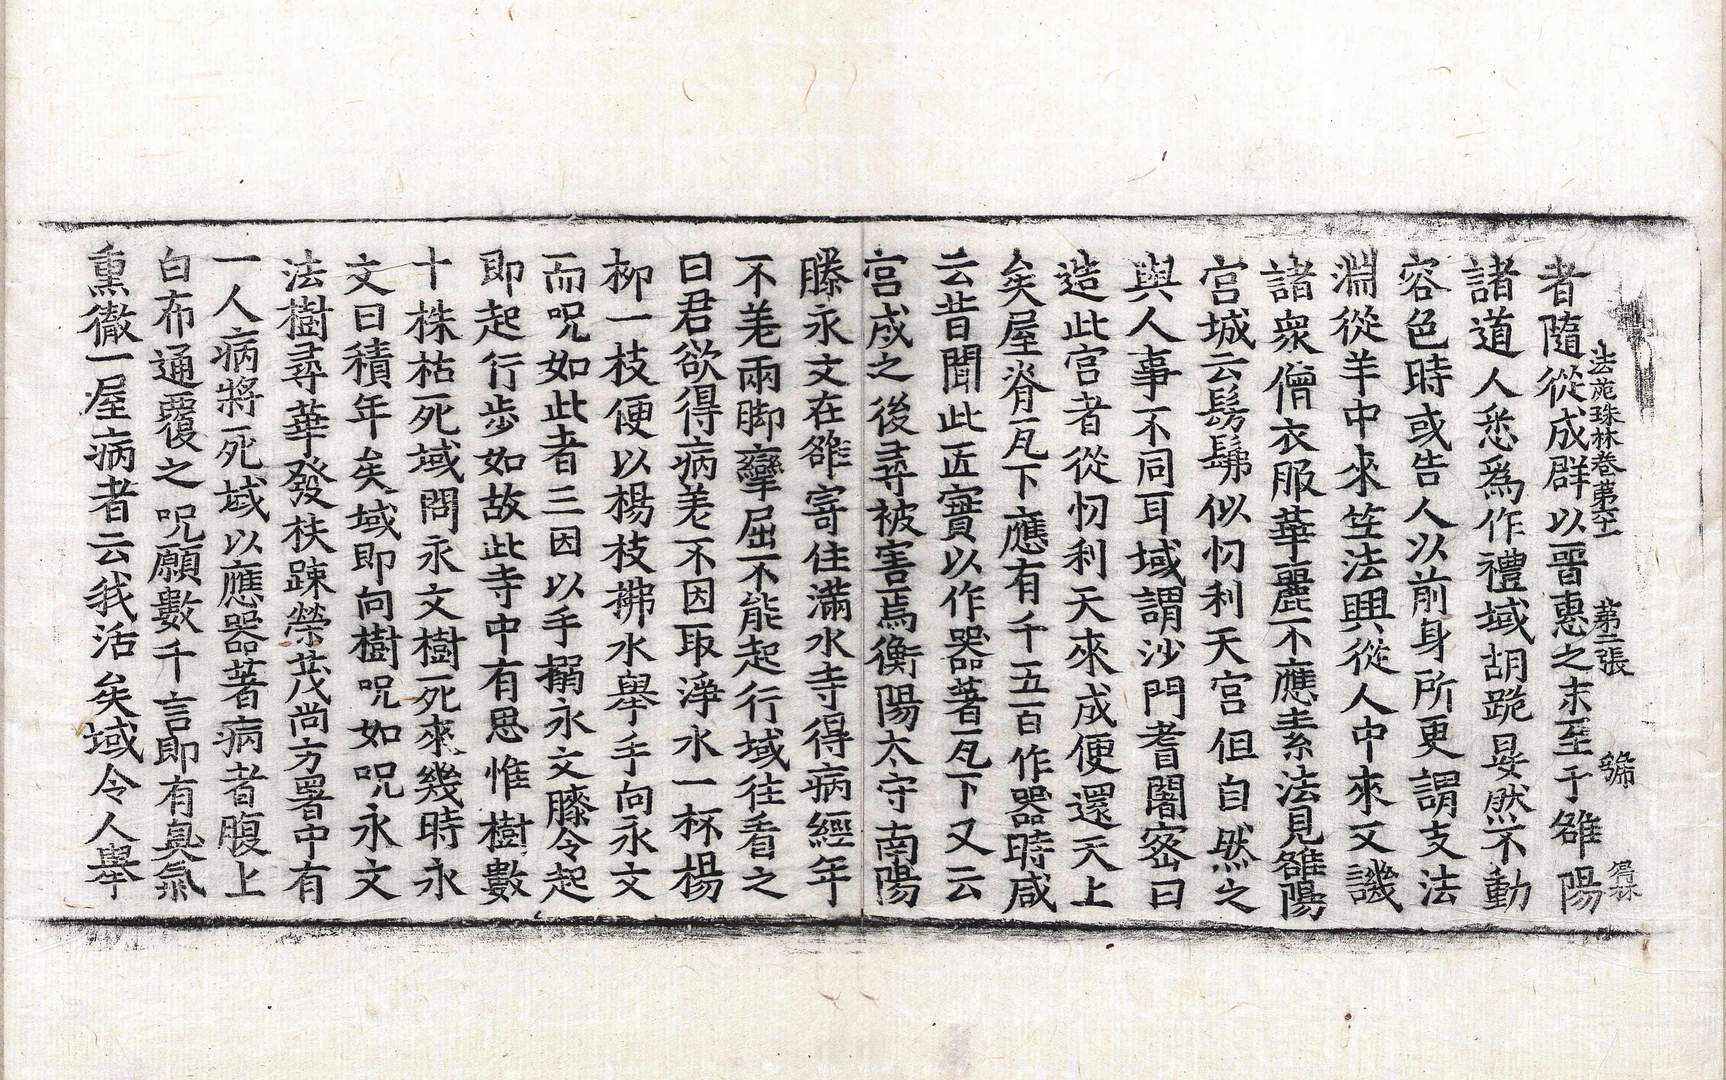 法苑珠林卷第六十一 第二張 號
者隨從成群以晉惠之末至于雒陽
諸道人悉爲作禮域胡跪晏然不動
容色時或告人以前身所更謂支法
淵從羊中來竺法興從人中來又譏
諸衆僧衣服華麗不應素法見雒陽
宮城云髣髴似忉利天宮但自然之
與人事不同耳域謂沙門耆闍宻曰
造此宮者從忉利天來成便還天上
矣屋脊瓦下應有千五百作器時咸
云昔聞此匠實以作器著瓦下又云
宮成之後尋被害焉衡陽太守南陽
滕永文在雒寄住滿水寺得病經年
不差兩脚攣屈不能起行域往看之
曰君欲得病差不因取淨水一杯楊
柳一枝便以楊枝拂水舉手向永文
而呪如此者三因以手搦永文膝令起
即起行步如故此寺中有思惟樹數
十株枯死域問永文樹死來幾時永
文曰積年矣域即向樹呪如呪永文
法樹尋華發扶踈榮茂尚方署中有
一人病將死域以應器著病者腹上
白布通覆之呪願數千言即有臭氣
熏徹一屋病者云我活矣域令人舉